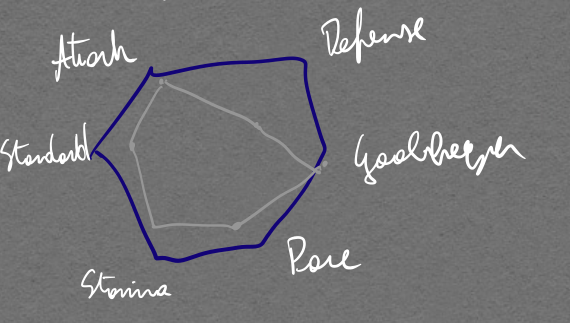 Attack
Defense
Standard
Goalkeeper
Pace
Stamina